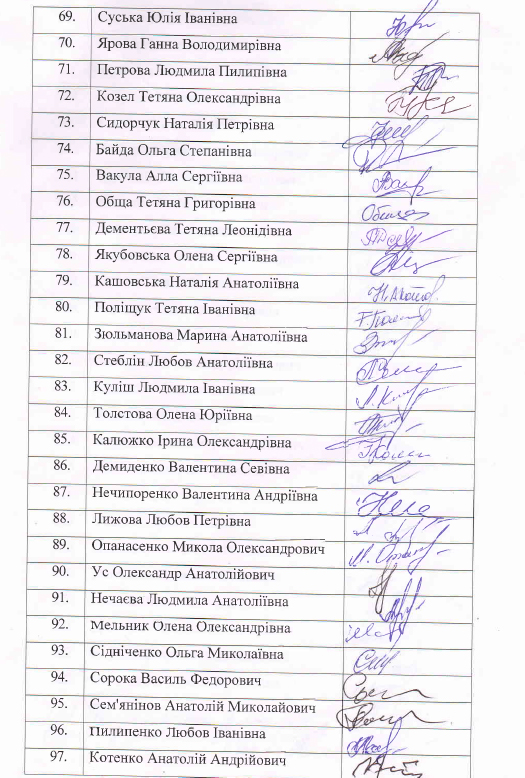 69. Суська Юлія Іванівна
70. Ярова Ганна Володимирівна
71. Петрова Людмила Пилипівна
72. Козел Тетяна Олександрівна
73. Сидорчук Наталія Петрівна
74. Байда Ольга Степанівна
75. Вакула Алла Сергіївна
76. Обща Тетяна Григорівна
77. Дементьєва Тетяна Леонідівна
78. Якубовська Олена Сергіївна
79. Кашовська Наталія Анатоліївна
80. Поліщук Тетяна Іванівна
81. Зюльманова Марина Анатоліївна
82. Стеблін Любов Анатоліївна
83. Куліш Людмила Іванівна
84. Толстова Олена Юріївна
85. Калюжко Ірина Олександрівна
86. Демиденко Валентина Севівна
87. Нечипоренко Валентина Андріївна
88. Лижова Любов Петрівна
89. Опанасенко Микола Олександрович
90. Ус Олександр Анатолійович
91. Нечаєва Людмила Анатоліївна
92. Мельник Олена Олександрівна
93. Сідніченко Ольга Миколаївна
94. Сорока Василь Федорович
95. Сем'янінов Анатолій Миколайович
96. Пилипенко Любов Іванівна
97. Котенко Анатолій Андрійович